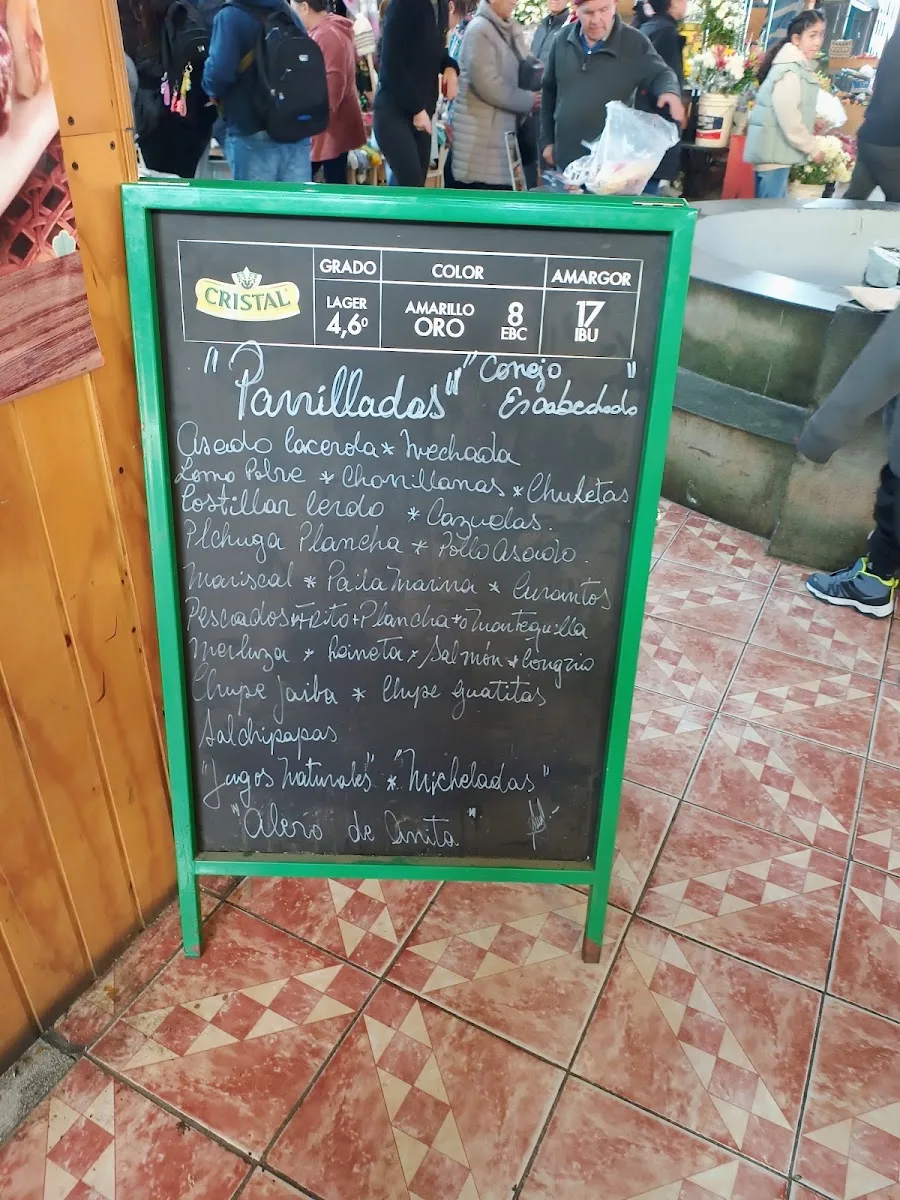 CRISTAL
GRADO COLOR AMARGOR
LAGER 4,6º AMARILLO ORO 8 EBC 17 IBU
"Parrilladas" "Conejo Escabechado"
Asado Cacerola * Mechada
Lomo Pobre * Chorrillanas * Chuletas
Costillar Cerdo * Cazuelas.
Pechuga Plancha * Pollo Asado.
Mariscal * Paila Marina * Curantos
Pescados Frito + Plancha * o Mantequilla
Merluza * Reineta * Salmón * Congrio
Chupe Jaiba * Chupe Guatitas
Salchipapas
"Jugos Naturales" * "Micheladas"
"Alero de Anita"